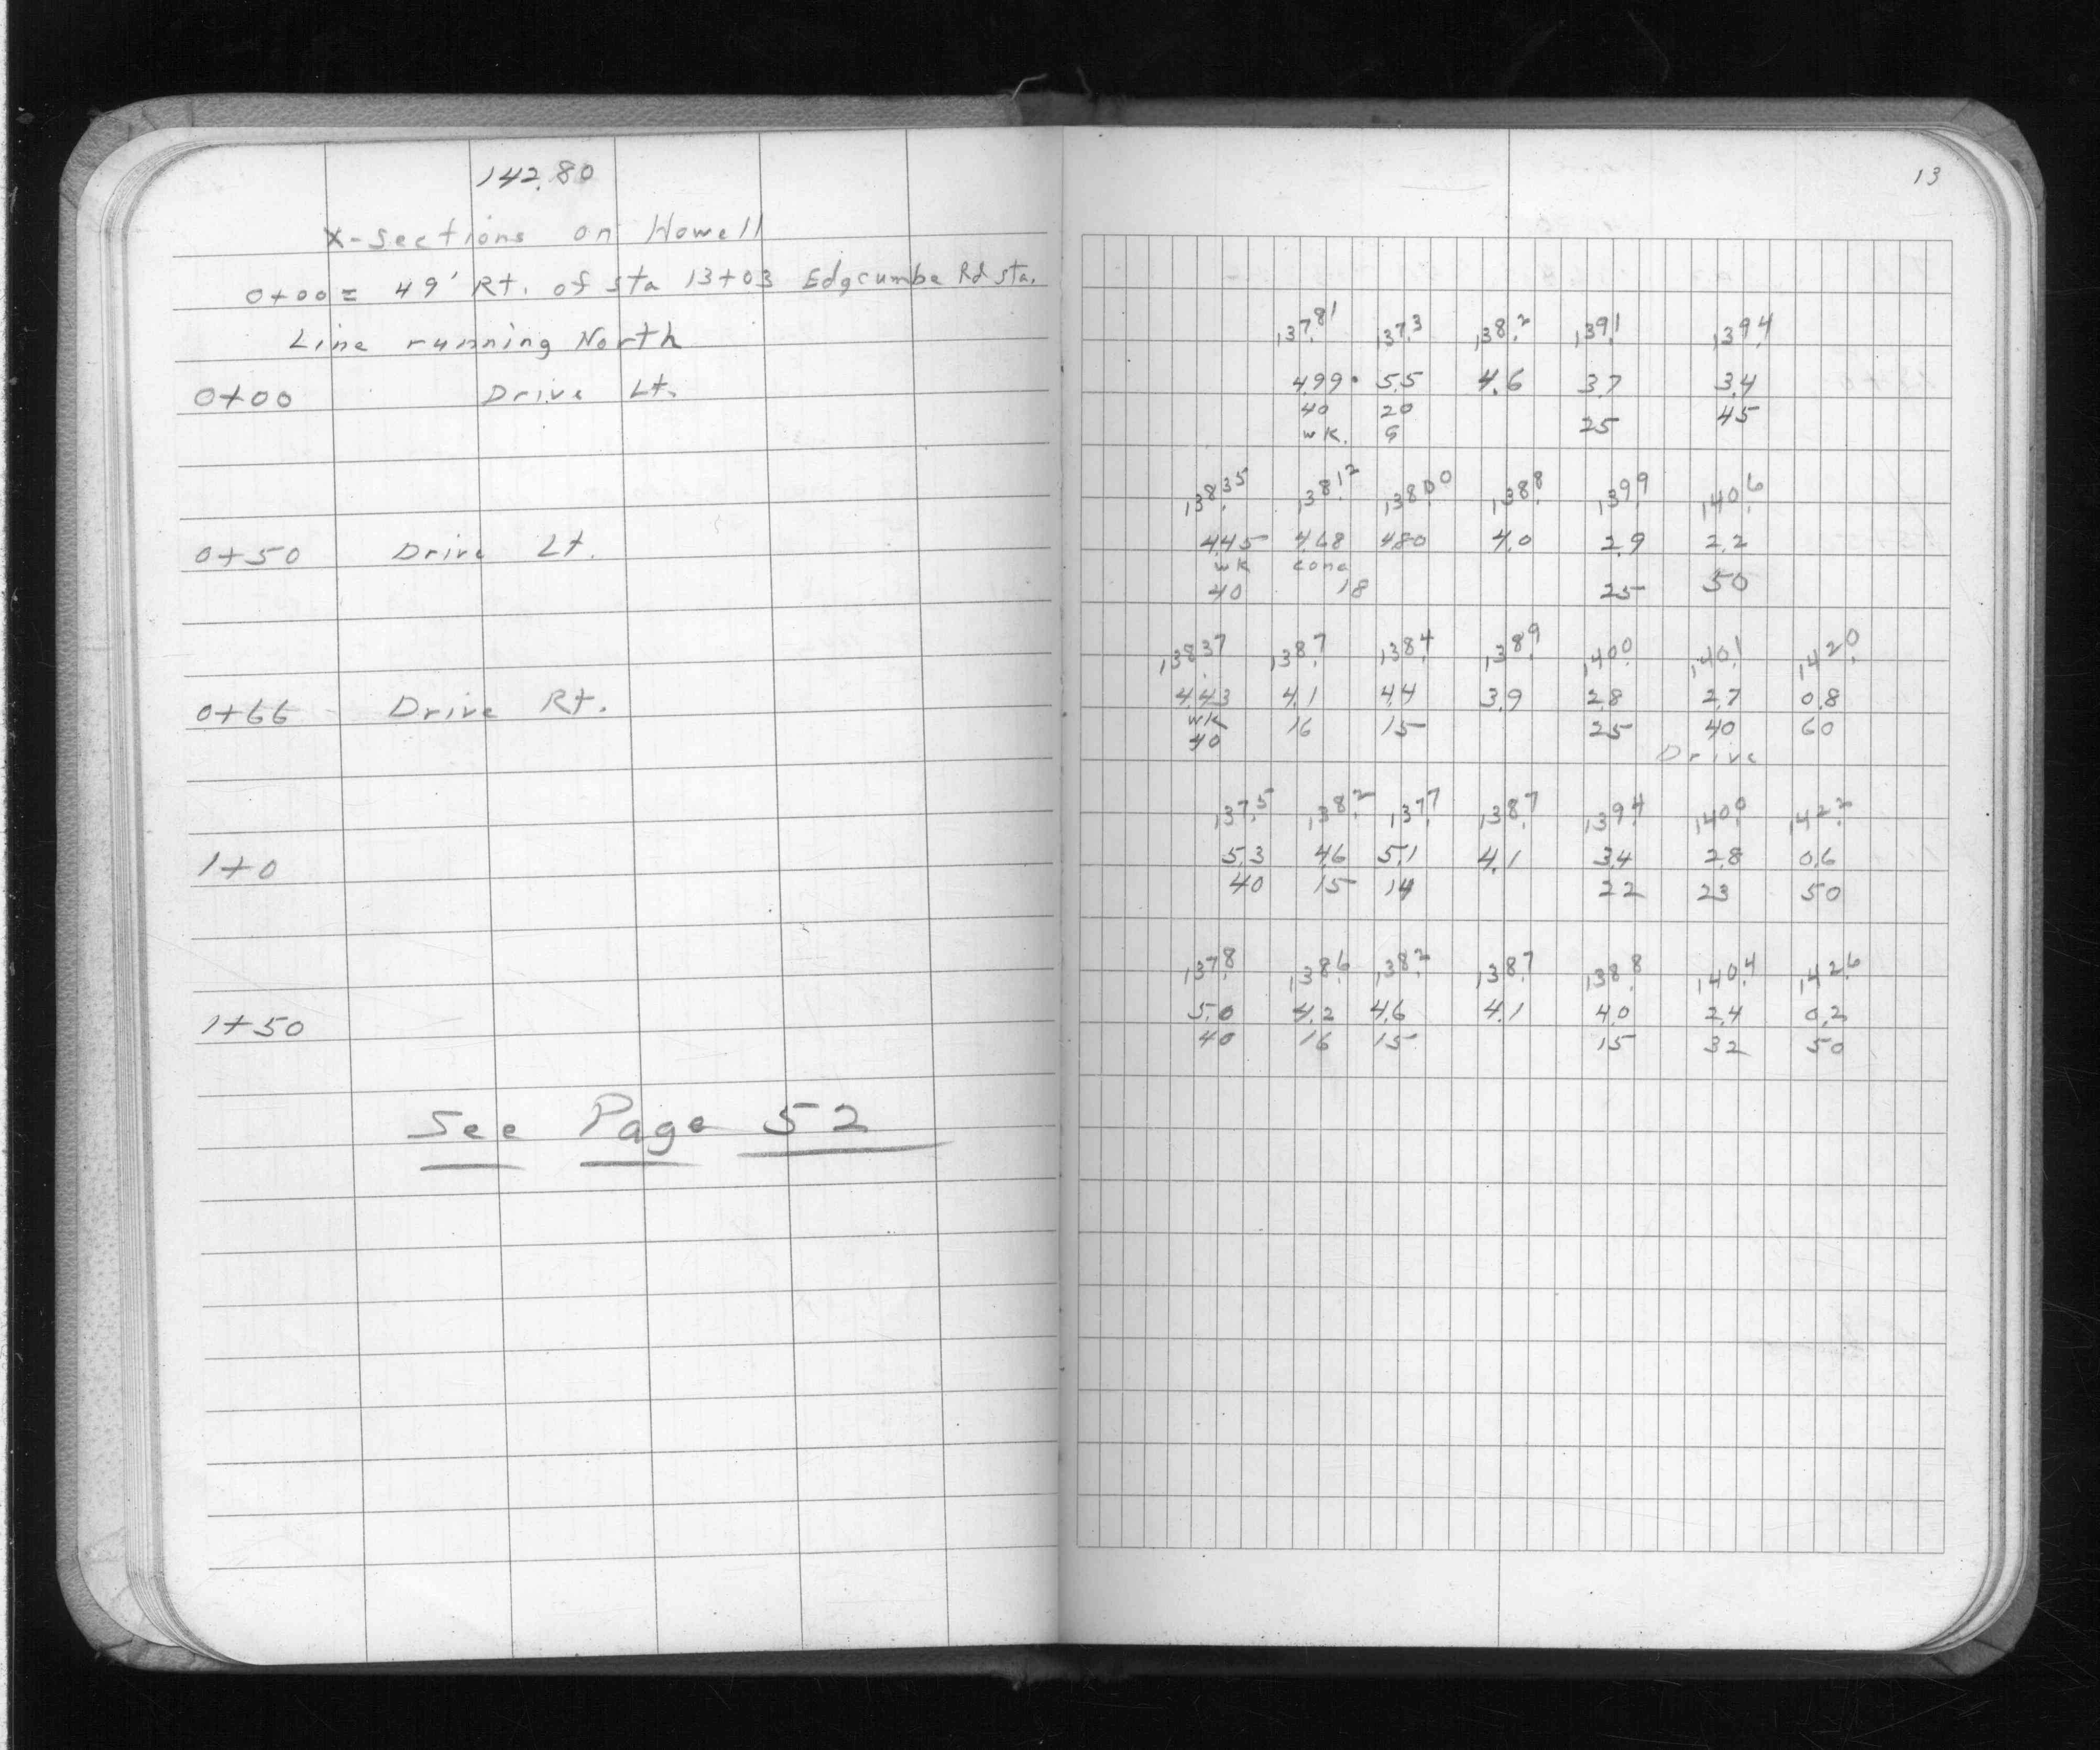 142.80
X-sections on Howell
0+00 = 49' Rt. of sta 13+03 Edgcumbe Rd sta.
Line running North
0+00 Drive Lt.
0+50 Drive Lt.
0+66 Drive Rt.
1+0
1+50
See Page 52
13
137.81 137.3 138.2 139.1 139.4
4.99 5.5 4.6 3.7 3.4
40 20 25 45
wk. G
138.35 138.12 138.00 138.8 139.9 140.6
4.45 4.68 4.80 4.0 2.9 2.2
wk conc
40 18 25 50
138.37 138.7 138.4 138.9 140.0 140.1 142.0
4.43 4.1 4.4 3.9 2.8 2.7 0.8
wk 16 15 25 40 60
40 Drive
137.5 138.2 137.7 138.7 139.4 140.0 142.2
5.3 4.6 5.1 4.1 3.4 2.8 0.6
40 15 14 22 23 50
137.8 138.6 138.2 138.7 138.8 140.4 142.6
5.0 4.2 4.6 4.1 4.0 2.4 0.2
40 16 15 15 32 50